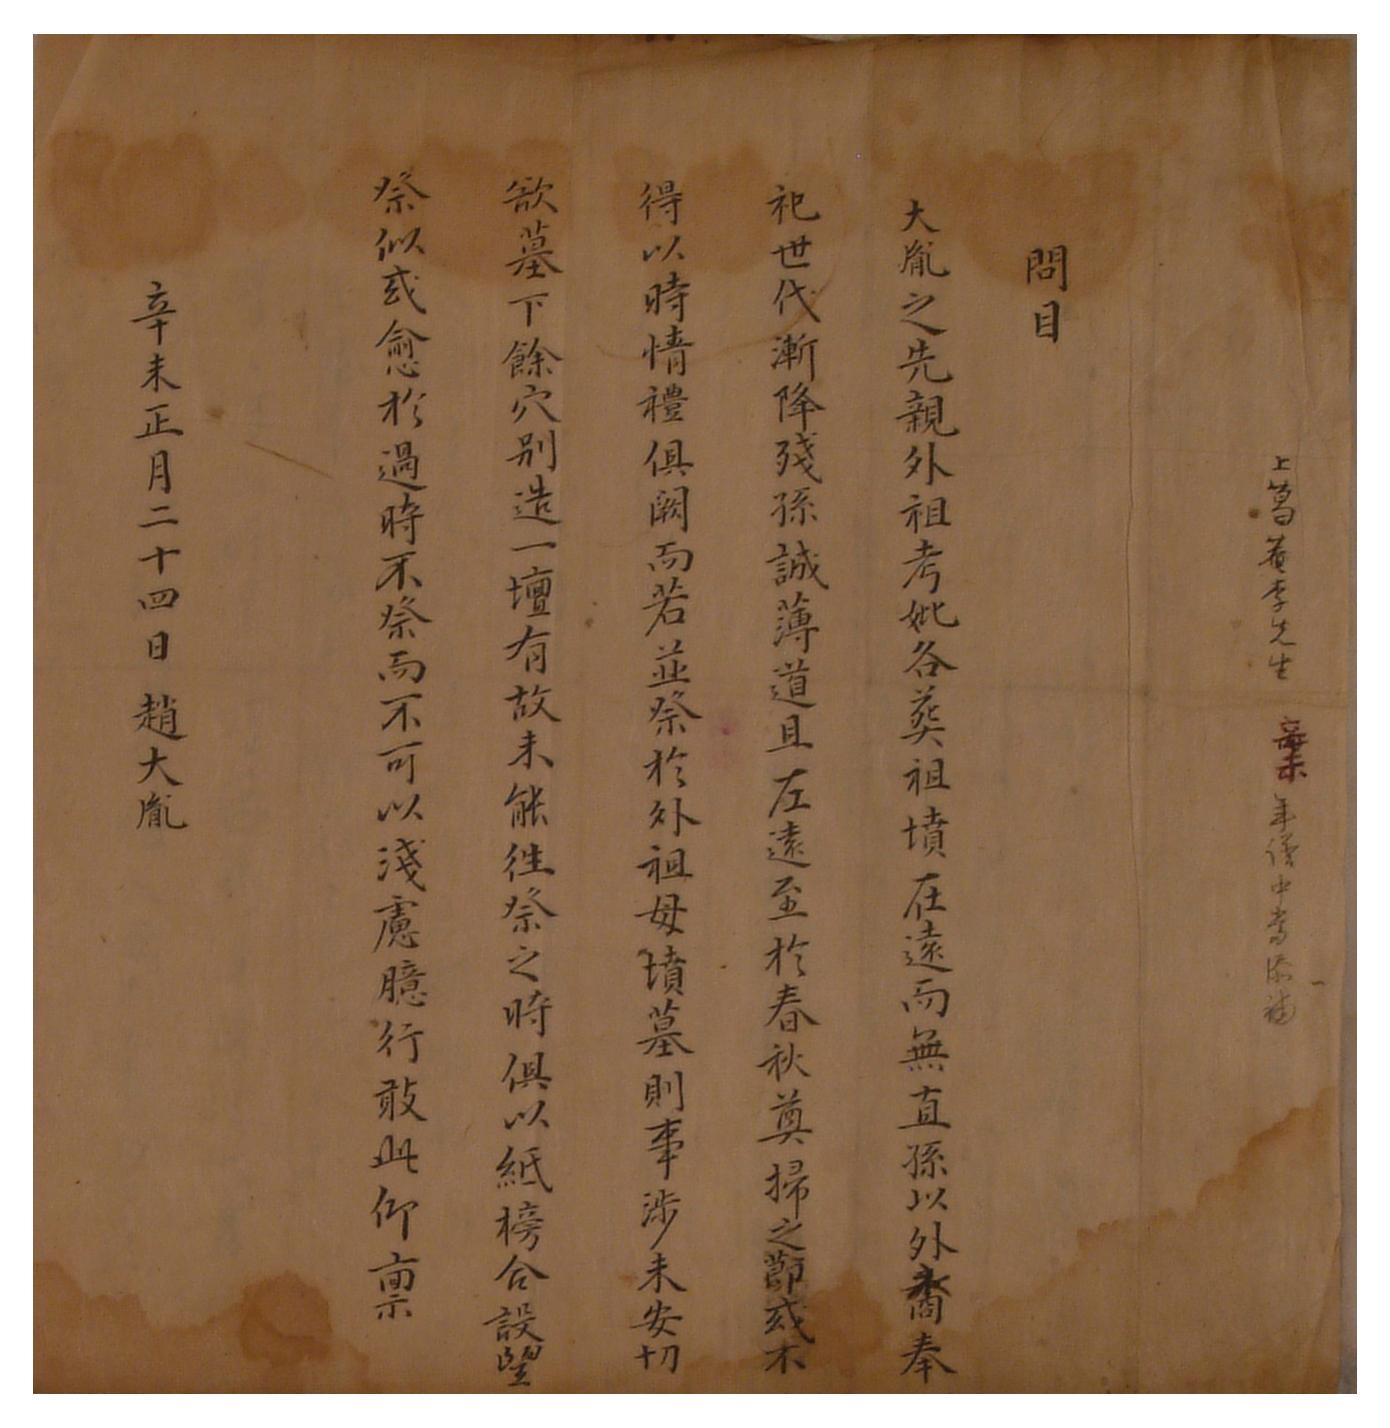 上葛菴李先生 辛未年條中當添補
問目
大胤之先親外祖考妣各葬祖墳在遠而無直孫以外裔奉
祀世代漸降殘孫誠薄道且左遠至於春秋奠掃之節或不
得以時情禮俱闕而若並祭於外祖母墳墓則事涉未安切
欲墓下餘穴别造一壇有故未能徃祭之時俱以紙榜合設望
祭似或愈於過時不祭而不可以淺慮臆行敢此仰稟
辛未正月二十四日趙大胤